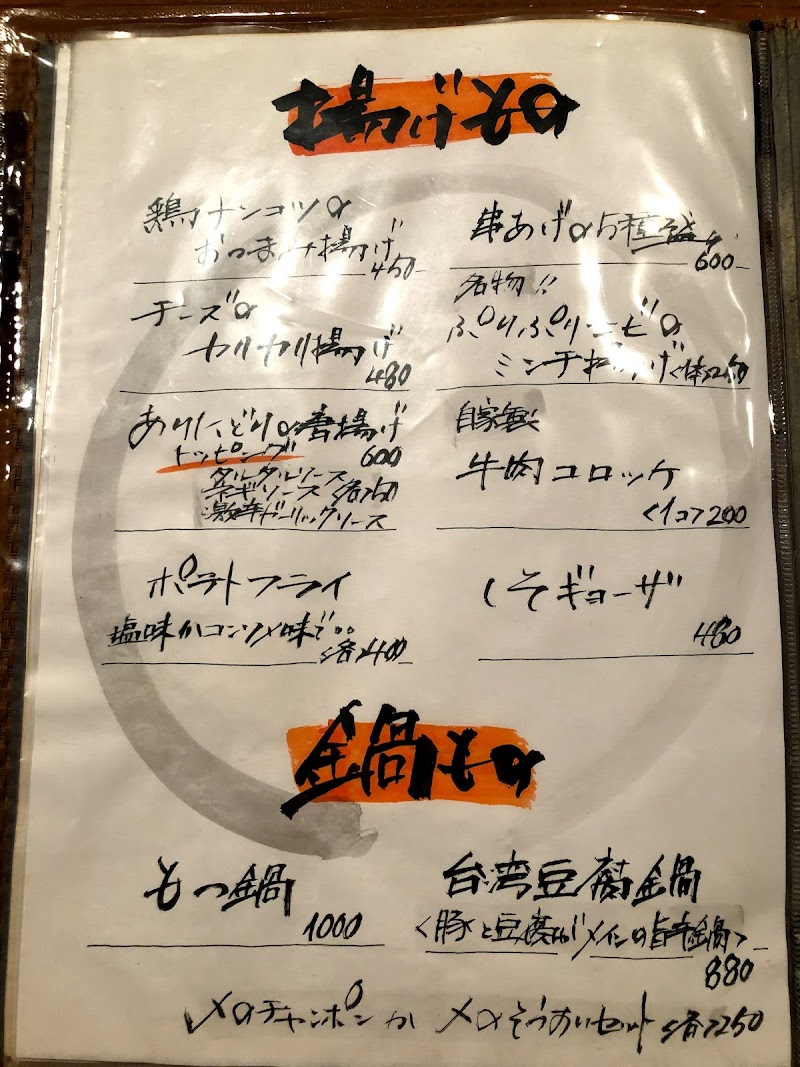 揚げもの
鶏ナンコツの
おつまみ揚げ
450-
チーズの
カリカリ揚げ
480
ありたどりの唐揚げ
トッピング
600
タルタルソース
ネギソース
激辛ガーリックソース
ポテトフライ
塩味かコンソメ味で。。
<各>400
串あげの5種盛り
600-
名物!!
ぷりぷりエビの
ミンチ揚げ
自家製
牛肉コロッケ
<1コ>200
しそギョーザ
480
鍋もの
もつ鍋
1000
台湾豆腐鍋
<豚と豆腐がメインの旨辛鍋>
880
〆のチャンポンか 〆のぞうすいセット <各>250